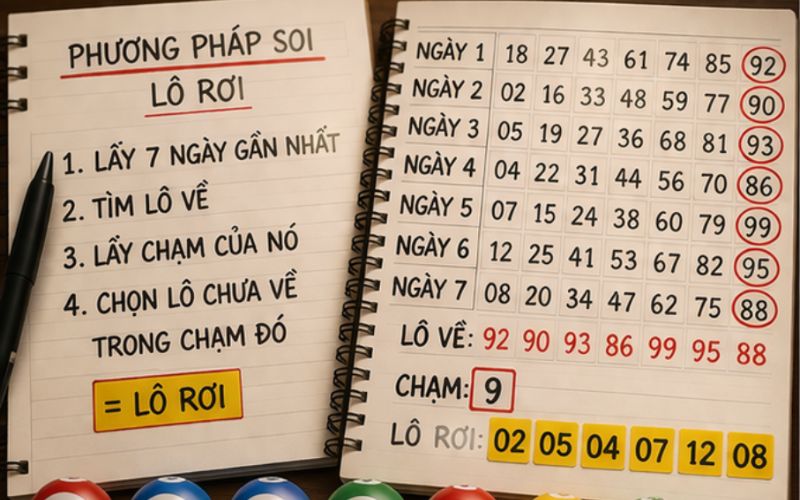 PHƯƠNG PHÁP SOI
LÔ RƠI
1. LẤY 7 NGÀY GẦN NHẤT
2. TÌM LÔ VỀ
3. LẤY CHẠM CỦA NÓ
4. CHỌN LÔ CHƯA VỀ
TRONG CHẠM ĐÓ
= LÔ RƠI
NGÀY 1 18 27 43 61 74 85 92
NGÀY 2 02 16 33 48 59 77 90
NGÀY 3 05 19 27 36 68 81 93
NGÀY 4 04 22 31 44 56 70 86
NGÀY 5 07 15 24 38 60 79 99
NGÀY 6 12 25 41 53 67 82 95
NGÀY 7 08 20 34 47 62 75 88
LÔ VỀ: 92 90 93 86 99 95 88
CHẠM: 9
LÔ RƠI: 02 05 04 07 12 08